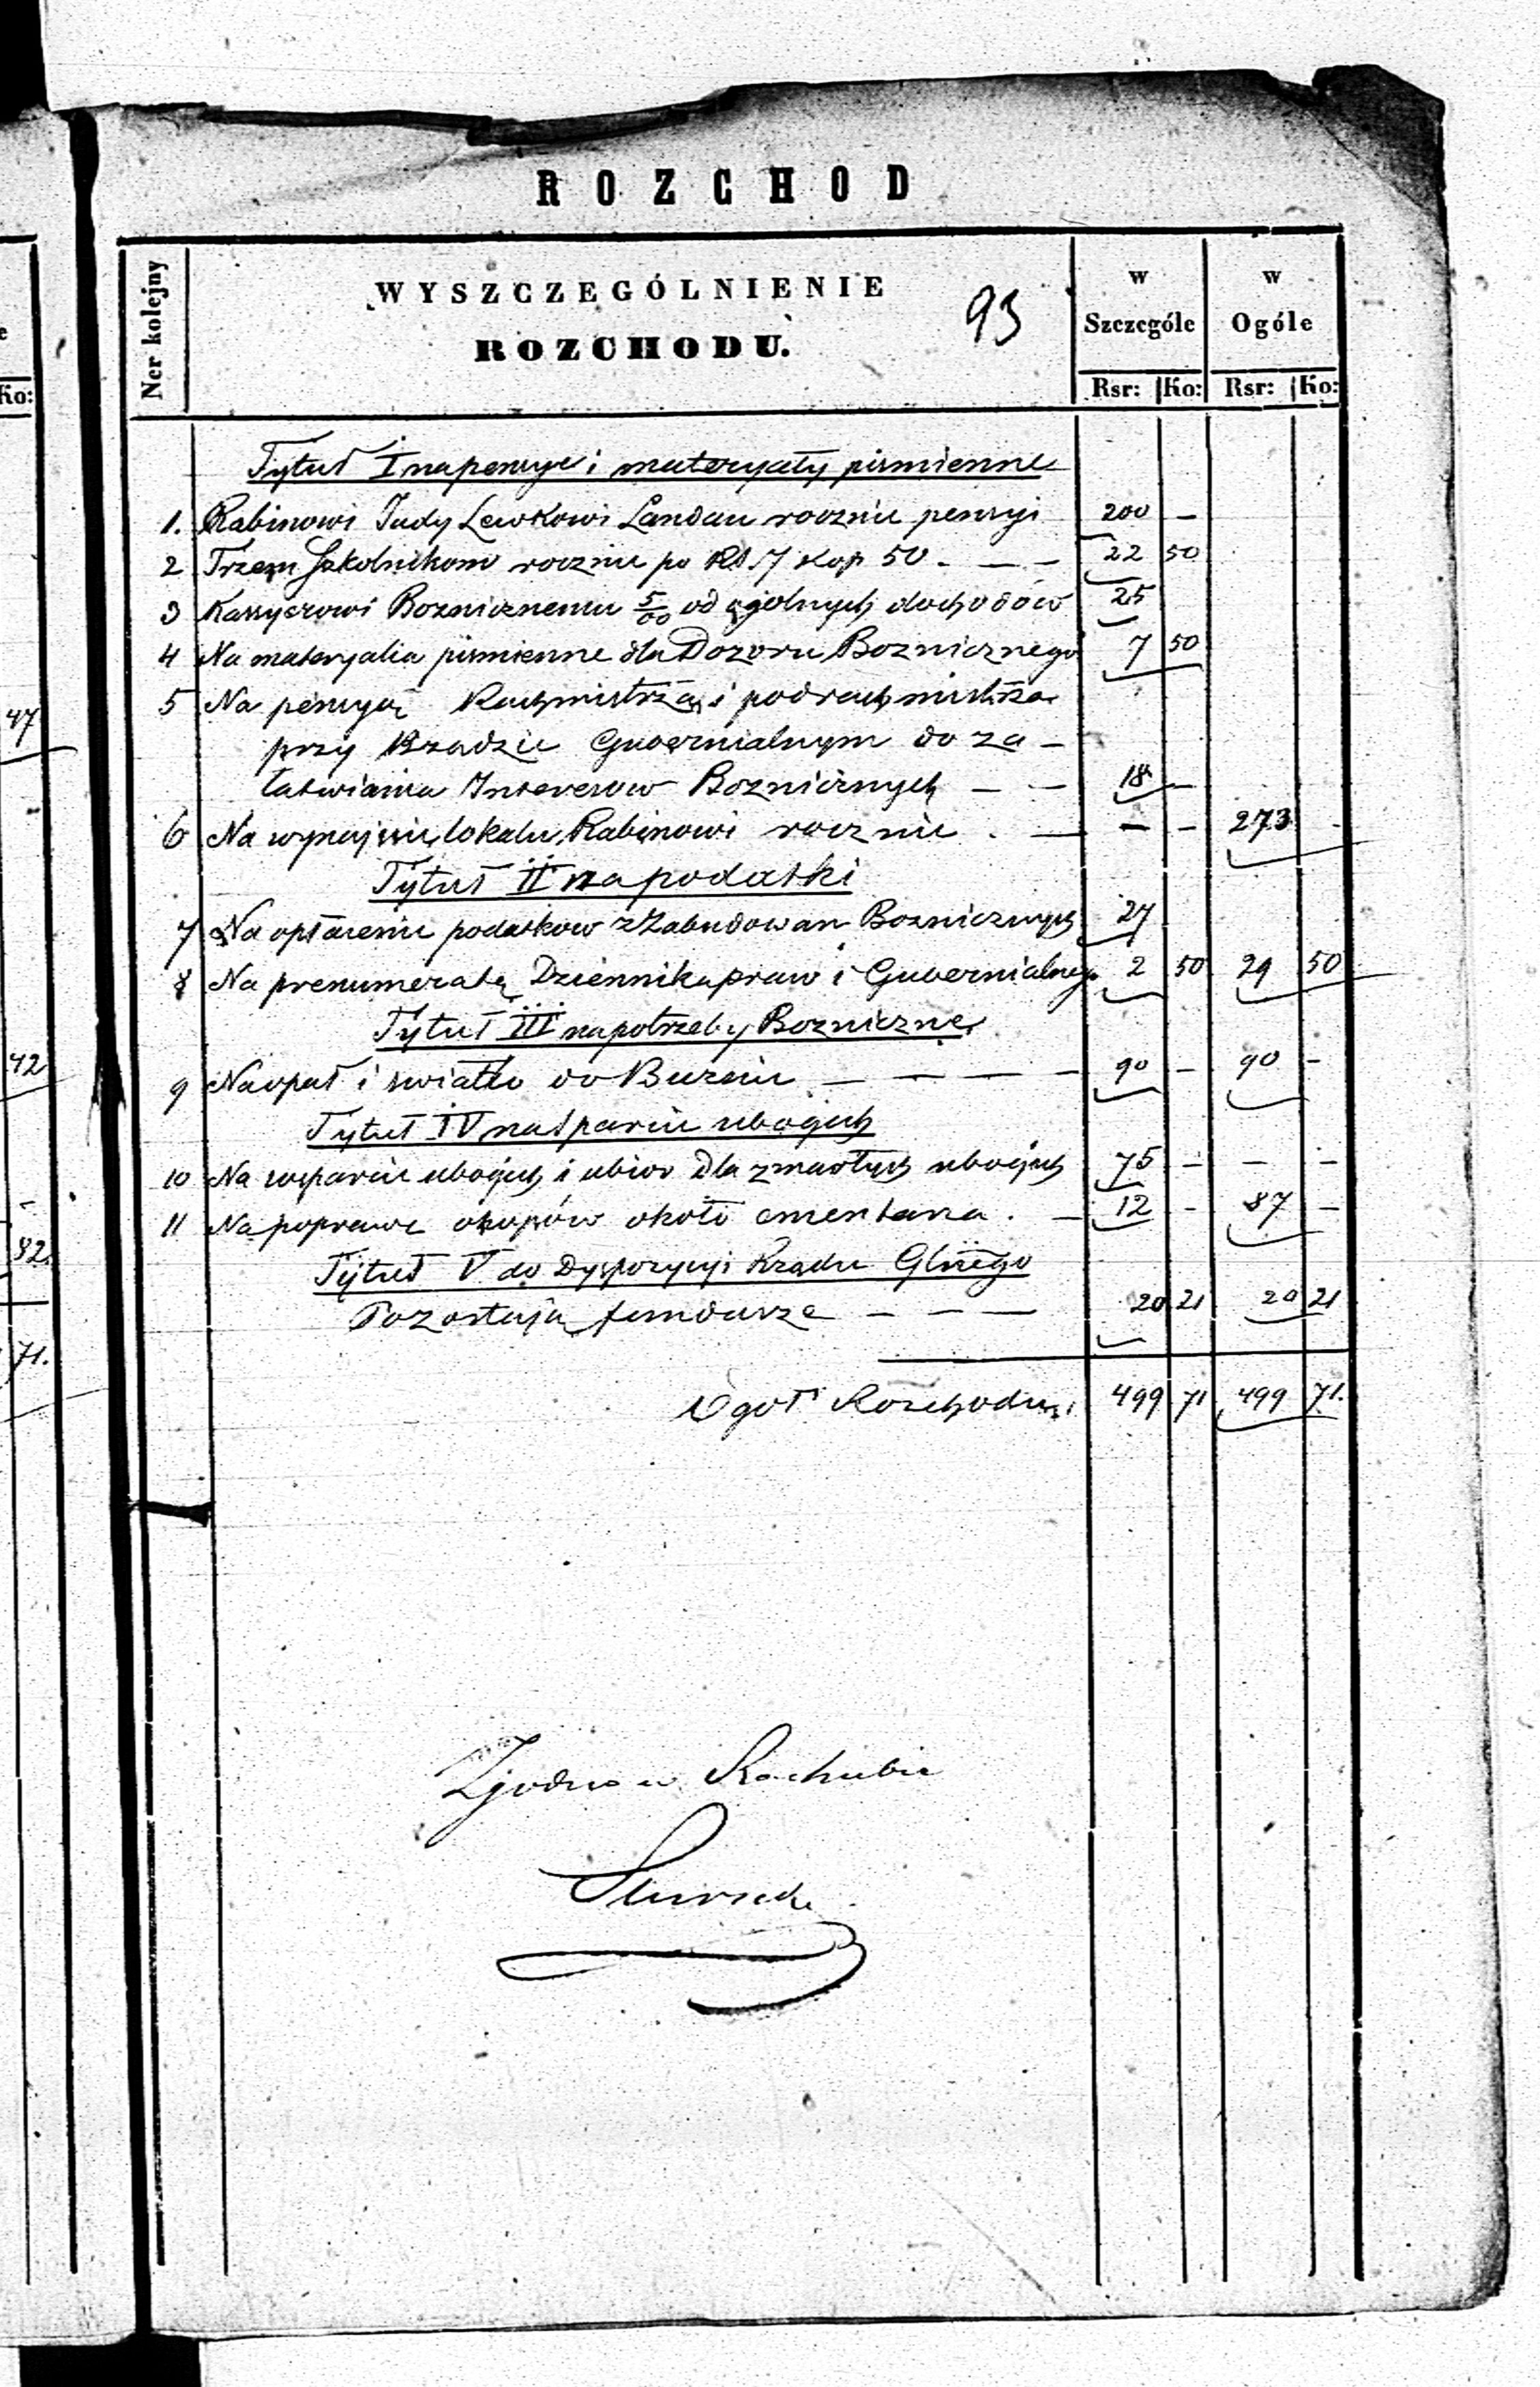 ROZCHOD
Ner kolejny
WYSZCZEGÓLNIENIE
ROZCHODU.
93
w Szczególe
w Ogóle
Rsr: Ko: Rsr: Ko:
Ko:
Tytuł I na pensye i materyały pismienne
1. Rabinowi Judy Lewkowi Landau rocznie pensyi 200 —
2 Trzem Szkolnikom rocznie po RS. 7 kop 50 . — — 22 50
3 Kassyerowi Boznicznemu 5/00 od ogolnych dochodów 25
4 Na materyalia pismienne dla Dozoru Boznicznego 7 50
5 Na pensyą Rachmistrza i podrachmistrza
przy Rządzie Gubernialnym do za —
łatwiania Interesow Boznicznych — — 18 —
6 Na wynajęcie lokalu Rabinowi rocznie . — — — 273 -
Tytuł II na podatki
7 Na opłacenie podatkow z Zabudowan Boznicznych 27
8 Na prenumeratę Dziennika praw i Gubernialnego 2 50 29 50
Tytuł III na potrzeby Bozniczne
9 Na opał i swiatło do — — — — 90 — 90 —
Tytuł IV na sparcie ubogich
10 Na wsparcie ubogich i ubior dla zmarłych ubogich 75 — — —
11 Na poprawę okopów około cmentarza . — 12 — 87 —
Tytuł V do Dyspozycyi Rządu Glnego
Pozostają fundusze — — — 20 21 20 21
Ogoł Rozchodu 499 71 499 71.
47
42
82.
71.
Zgodno w Rachubie